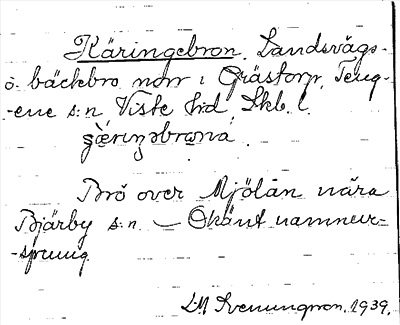 Käringebron, Landsvägs-
o. bäckbro norr i Grästorp, Teng-
-ene s:n, Viste hd, Skb. l.
Bro över Mjölån nära
Bjärby s:n. — Okänt namnur-
-sprung.
L.M. Svenungsson. 1939.